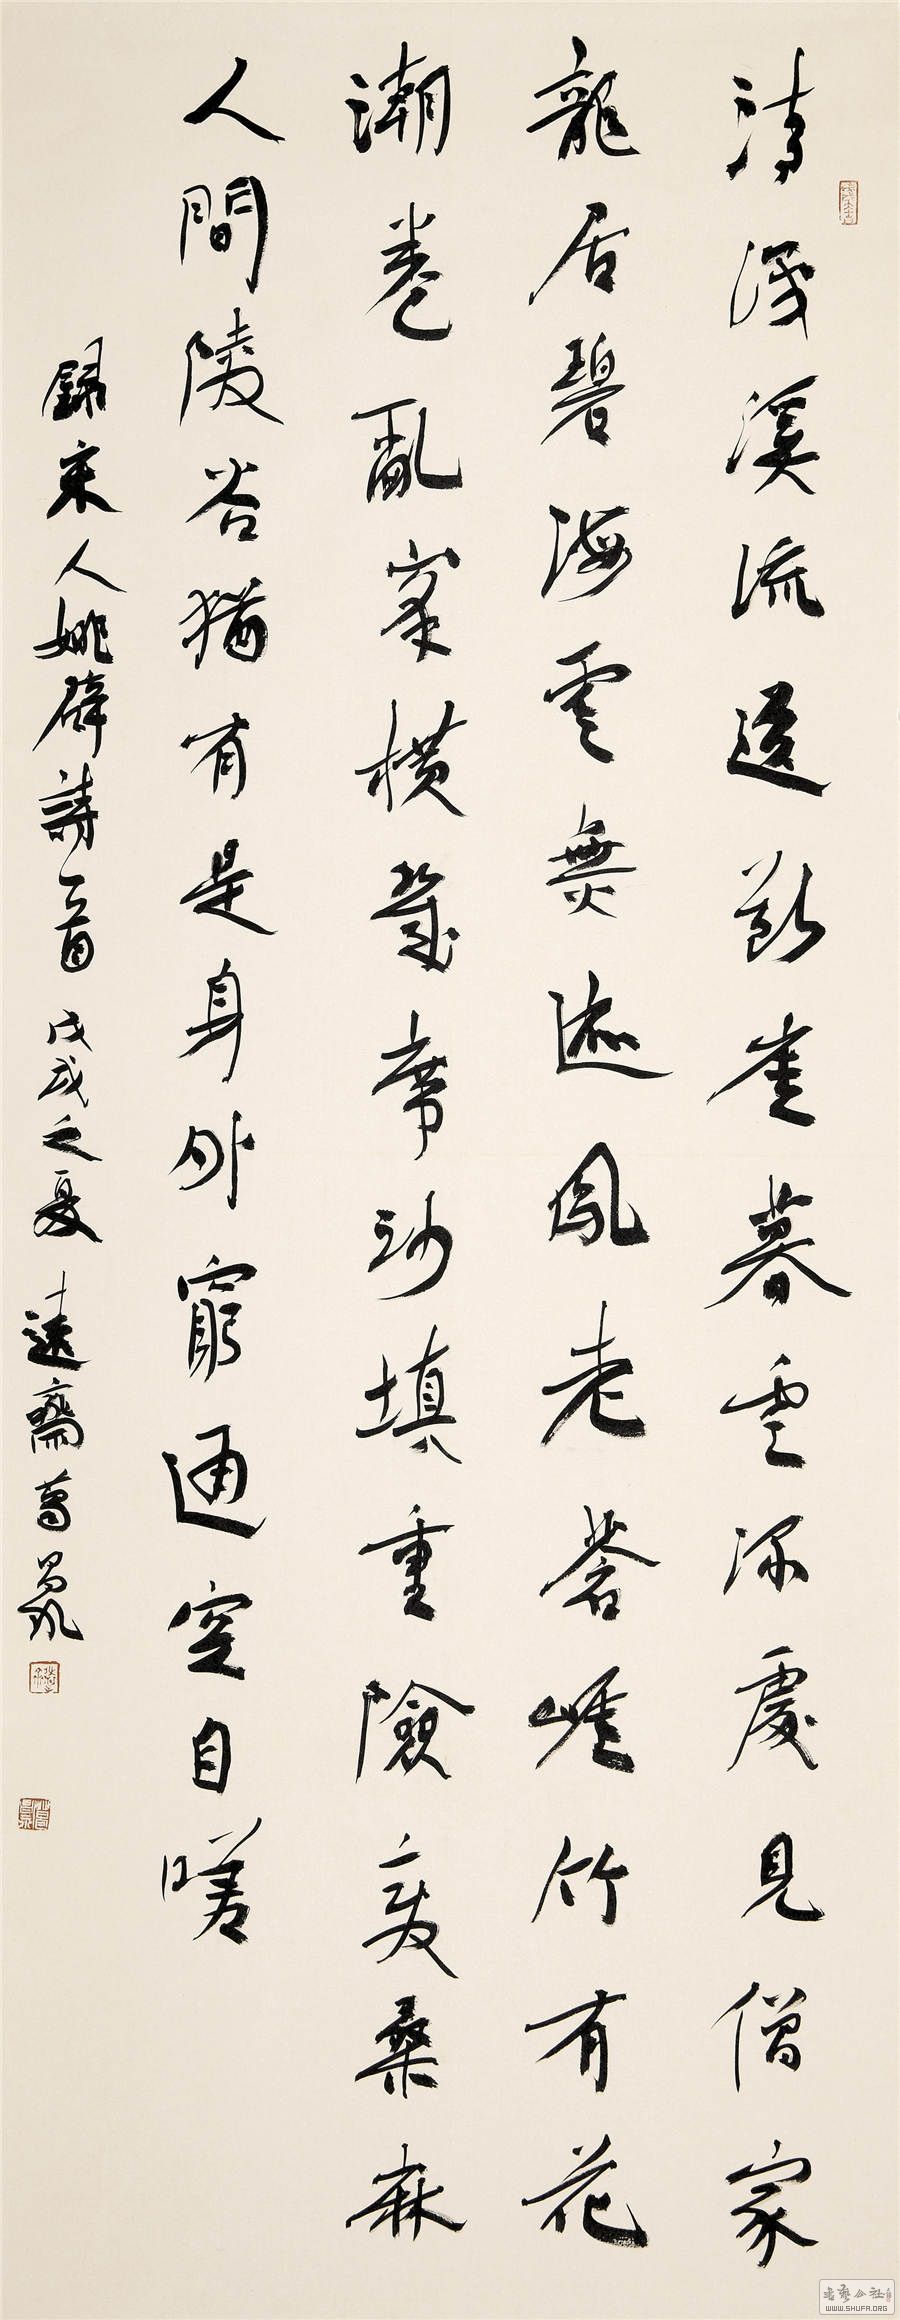 清淺溪流遶斷崖暮雲深處見僧家
龍居碧海雲無迹鳳老蒼崕竹有花
潮卷亂峯橫幾席沙填重險變桑麻
人間陵谷猶有是身外窮通空自嗟
錄宋人姚辟詩一首 戊戌之夏 遠齋葛
书艺公社
WWW.SHUFA.ORG